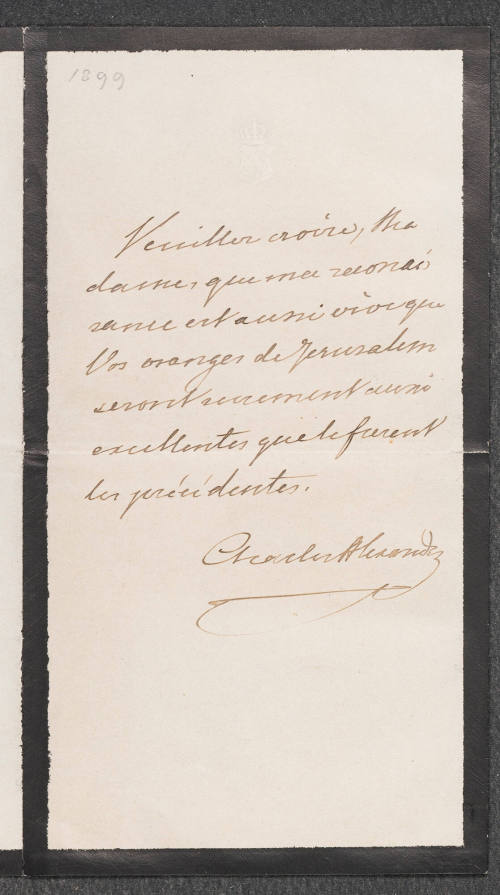 1899
Veuillez croire, Ma
dame, que ma reconais
sance est aussi vive que
Vos oranges de Jerusalem
seront surement aussi
excellentes que le furent
les précédentes.
Charles Alexandre